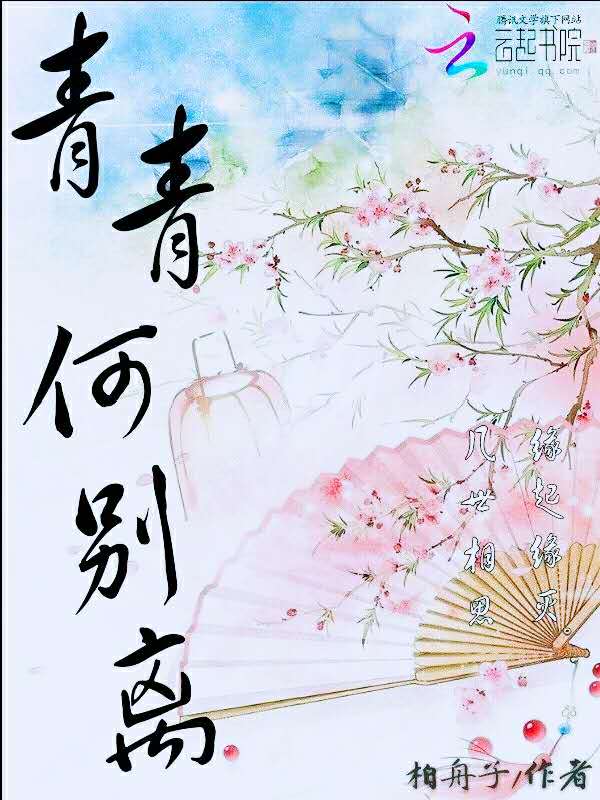 腾讯文学旗下网站
云起书院
yunqi.qq.com
青青何别离
缘起缘灭。
几世相思
柏舟子/作者